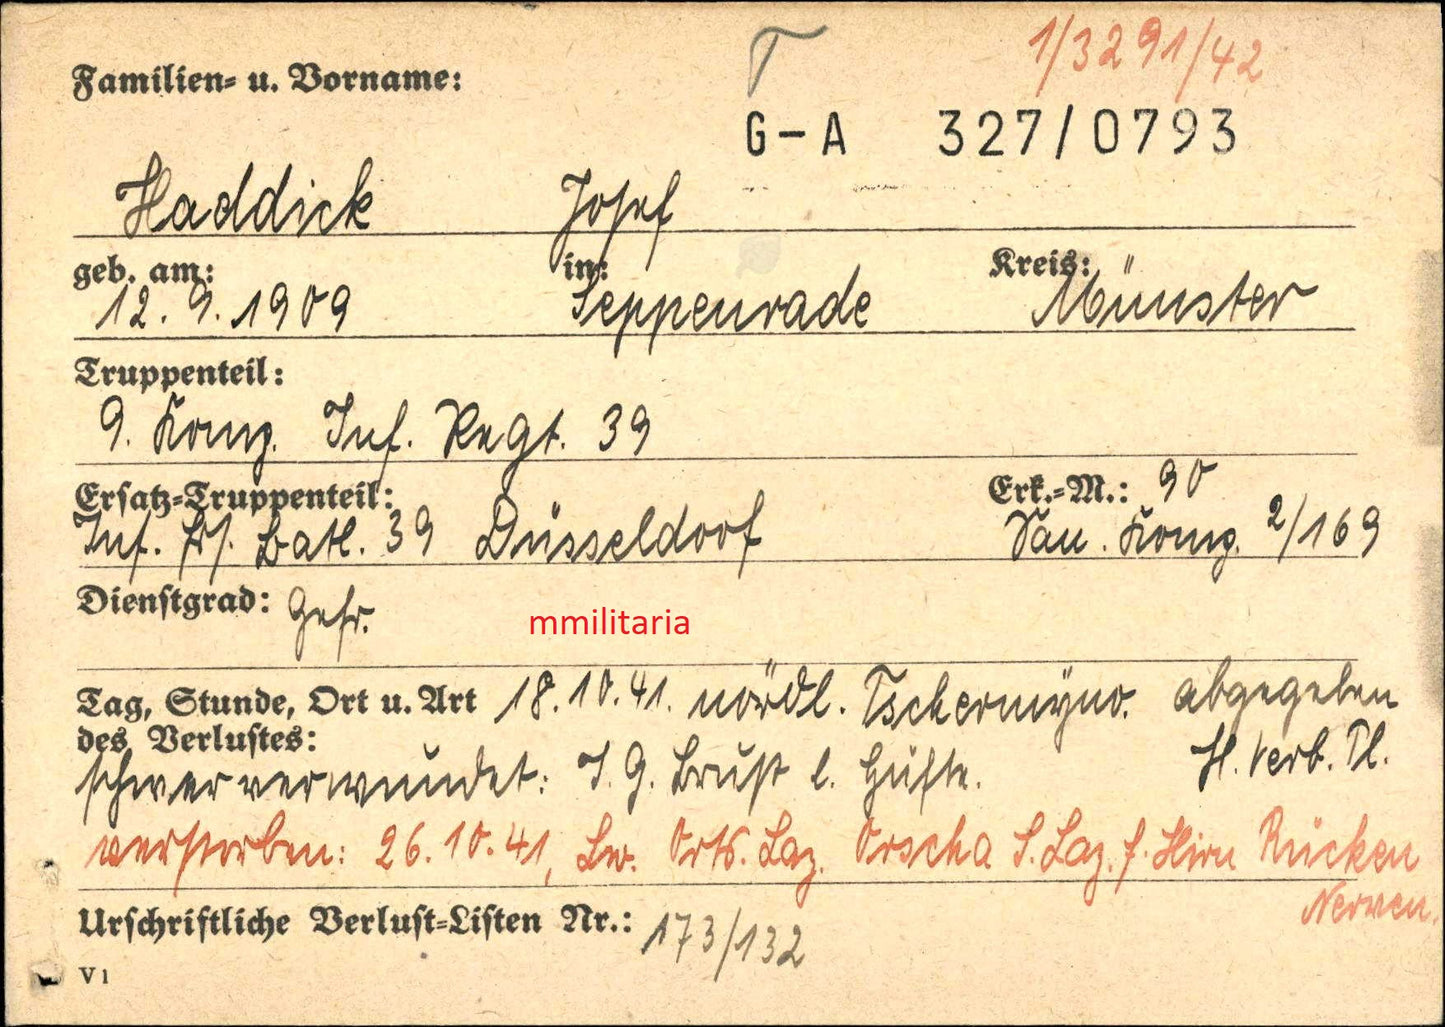 T 1/3291/42
Familien- u. Vorname:
G-A 327/0793
Haddick Josef
geb. am: in: Kreis:
12. 9. 1909 Seppenrade Münster
Truppenteil:
9. Komp. Inf. Regt. 39
Ersatz-Truppenteil: Erk.-M.: 90
Inf. Ers. Batl. 39 Düsseldorf San. Komp. 2/169
Dienstgrad: Gefr.
mmilitaria
Tag, Stunde, Ort u. Art 18.10.41. nördl. abgegeben
des Verlustes: H. Verb. Pl.
schwer verwundet: I. G. Brust l. Hüfte.
verstorben: 26.10.41, Orts. Laz. Orscha S. Laz. f. Hirn Rücken
Nerven.
Urschriftliche Verlust-Listen Nr.: 173/132
V 1